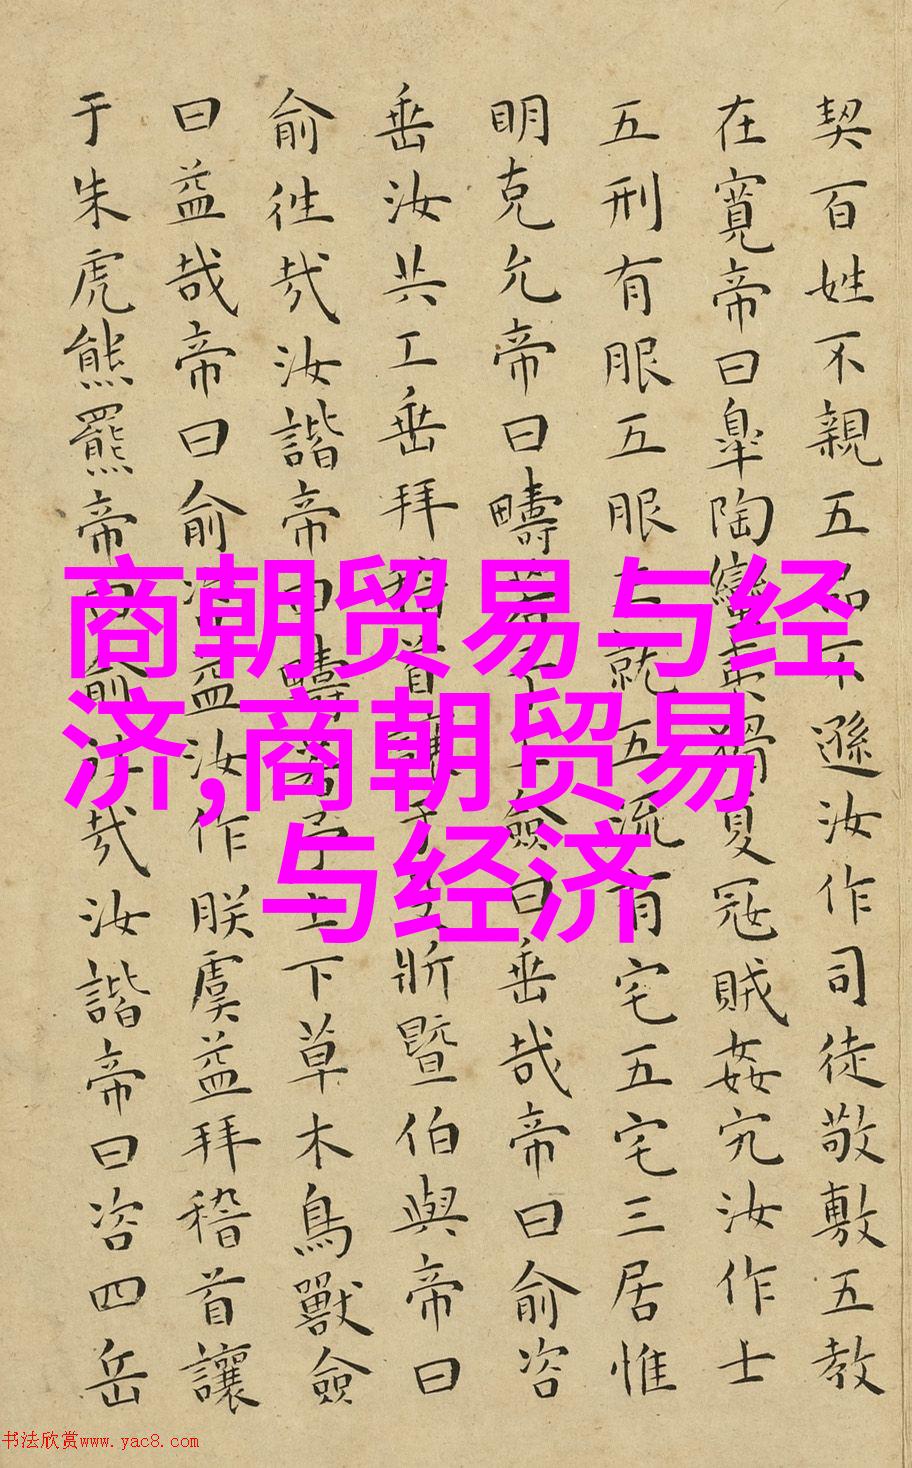 契百姓不親五品不遜汝作司徒敬敷五教
在寬帝曰皐陶蠻夷猾夏冦賊姦宄汝作士
五刑有服五服三就五流有宅五宅三居惟
明克允帝曰疇若予工僉曰垂哉帝曰俞咨
垂汝共工垂拜稽首讓于殳斨暨伯與帝曰
俞徃哉汝諧帝曰疇若予上下草木鳥獸僉
曰益哉帝曰俞咨益汝作朕虞益拜稽首讓
于朱虎熊羆帝曰俞徃哉汝諧帝曰咨四岳
商朝贸易与经
济,商朝贸易
与经济
书法欣赏www.yac8.com